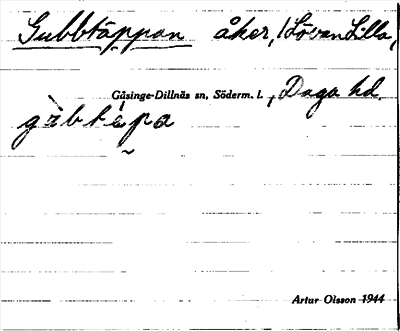 Gubbtäppan åker, (Lövan Lilla,
Gåsinge-Dillnäs sn, Söderm. l., Daga hd.
gùbtépa
Artur Olsson 1944